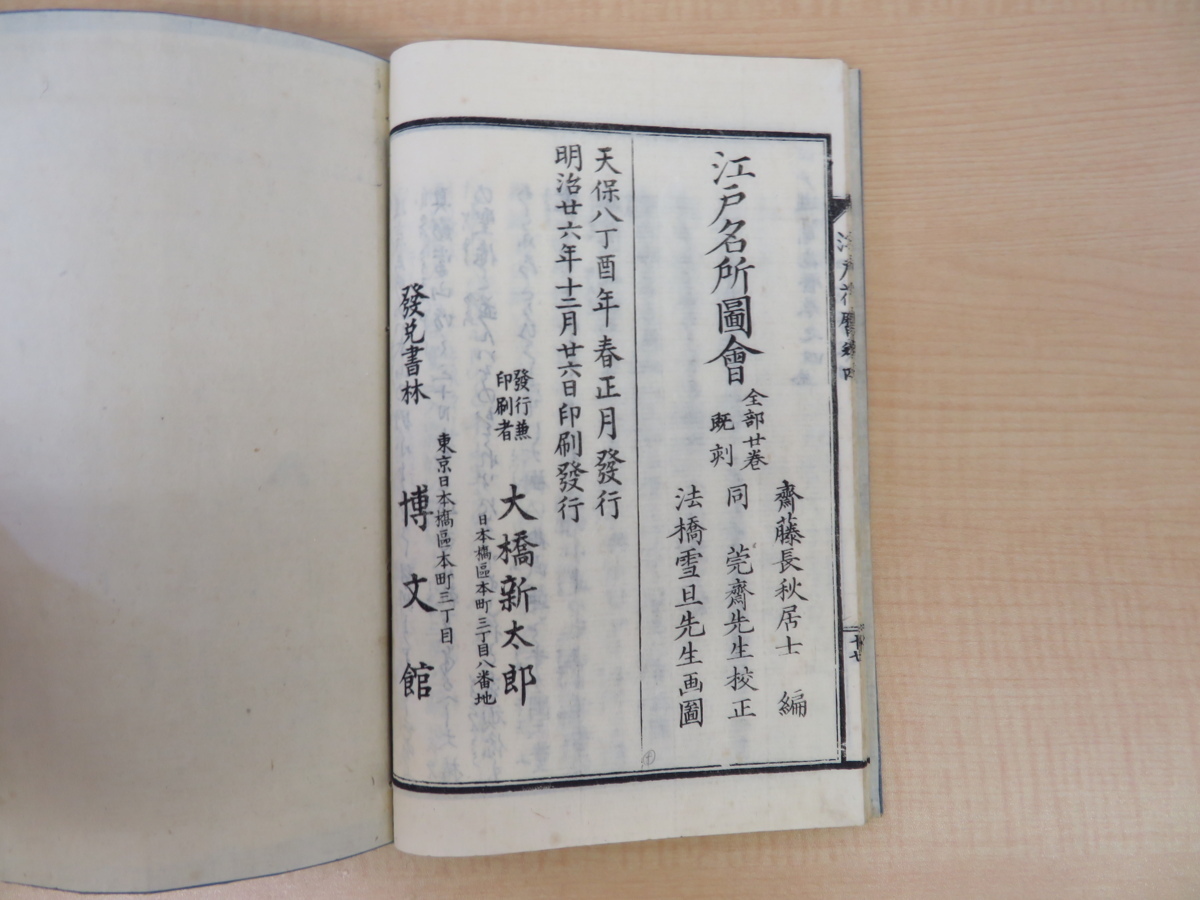 江戸名所圖會
全部廿巻
既刻
齋藤長秋居士 編
同 莞齋先生校正
法橋雪旦先生画圖
天保八丁酉年春正月發行
明治廿六年十二月廿六日印刷發行
發行兼
印刷者
大橋新太郎
日本橋區本町三丁目八番地
東京日本橋區本町三丁目
發兌書林
博文館
江戸花暦
十七